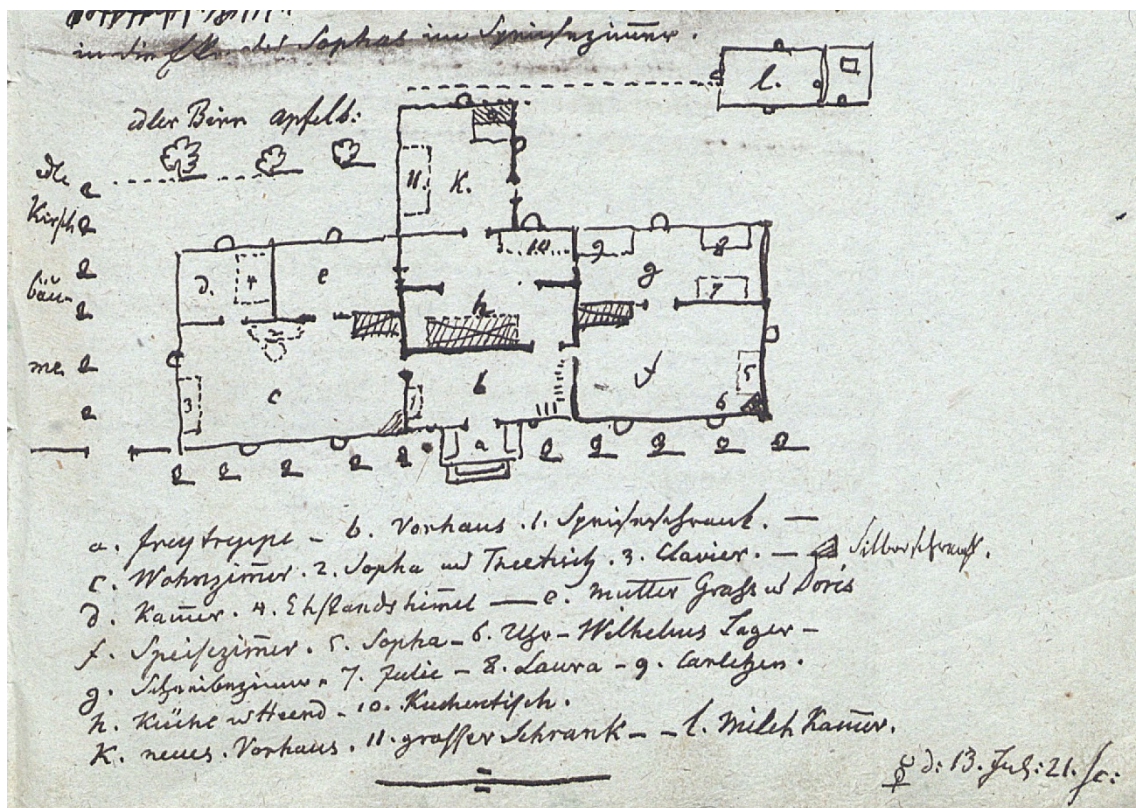 in die Eke des Sophas im Speisezimmer.
l.
edler Birn apfelb:
edle
Kirsch
bäu-
me
11. K.
d. 4 e
10. 9 g 8
h 7
3 c 1 b f 5
6
a
a. freytreppe – b. Vorhaus. 1. Speiseschrank. —
c. Wohnzim̄er. 2. Sopha und Theetisch. 3. Clavier. — Silberschrank.
d. Kam̄er. 4. Ehstandshim̄el — e. Mutter Grass u Doris
f. Speisezim̄er. 5. Sopha – 6. Uhr – Wilhelms Lager –
g. Schreibezim̄er 7. Julie – 8. Laura – 9. Carlchen.
h. Küche u Heerd – 10. Küchentisch.
K. neues Vorhaus. 11. grosser Schrank – – l. Milch Kam̄er.
♀ d: 13. Jul: 21. sc: